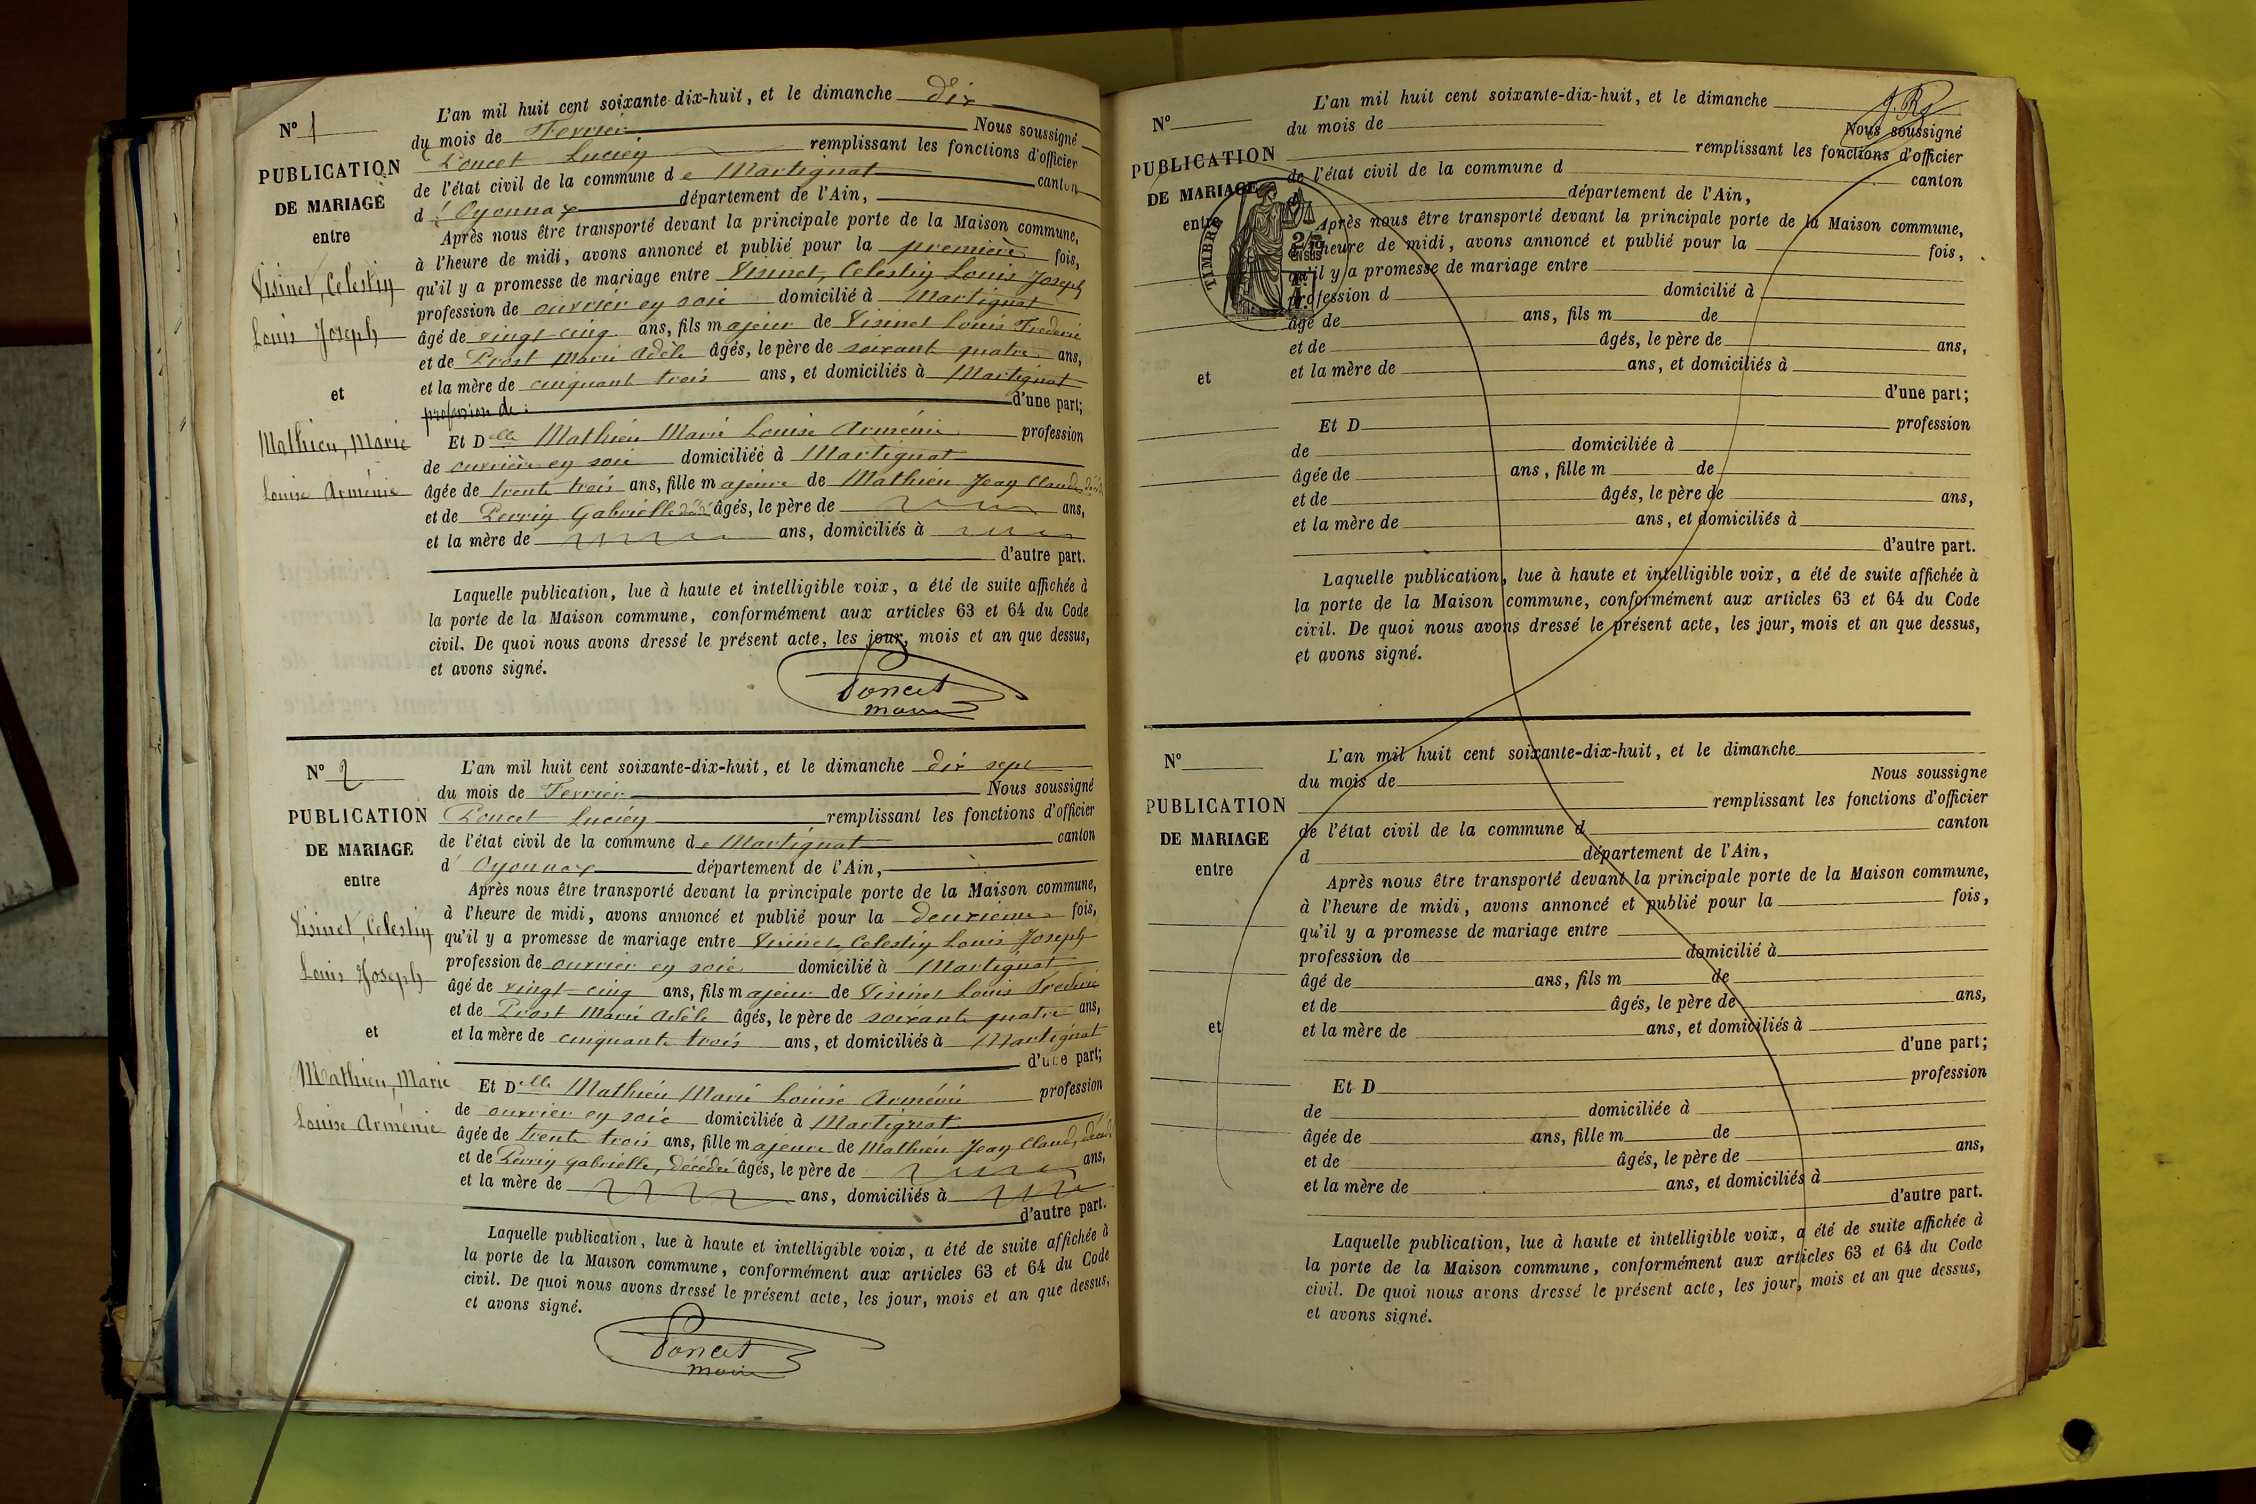 N° 1
PUBLICATION
DE MARIAGE
entre
Visinet, Celestin
Louis Joseph
et
Mathieu, Marie
Louise Arménie
L'an mil huit cent soixante-dix-huit, et le dimanche dix
du mois de Fevrier Nous soussigné
Poncet Lucien remplissant les fonctions d'officier
de l'état civil de la commune de Martignat canton
d'Oyonnax département de l'Ain,
Après nous être transporté devant la principale porte de la Maison commune,
à l'heure de midi, avons annoncé et publié pour la première fois,
qu'il y a promesse de mariage entre Visinet, Celestin Louis Joseph
profession de ouvrier en soie domicilié à Martignat
âgé de vingt cinq ans, fils majeur de Visinet Louis Frederic
et de Prost Marie Adèle âgés, le père de soixant quatre ans,
et la mère de cinquant trois ans, et domiciliés à Martignat
profession de : d'une part;
Et Delle Mathieu Marie Louise Arménie profession
de ouvrière en soie domiciliée à Martignat
âgée de trente trois ans, fille majeure de Mathieu Jean Claude
et de Perrin Gabrielle âgés, le père de ans,
et la mère de ans, domiciliés à
d'autre part.
Laquelle publication, lue à haute et intelligible voix, a été de suite affichée à
la porte de la Maison commune, conformément aux articles 63 et 64 du Code
civil. De quoi nous avons dressé le présent acte, les jour, mois et an que dessus,
et avons signé.
Poncet
maire
N° 2
PUBLICATION
DE MARIAGE
entre
Visinet, Celestin
Louis Joseph
et
Mathieu, Marie
Louise Arménie
L'an mil huit cent soixante-dix-huit, et le dimanche dix sept
du mois de Fevrier Nous soussigné
Poncet Lucien remplissant les fonctions d'officier
de l'état civil de la commune de Martignat canton
d'Oyonnax département de l'Ain,
Après nous être transporté devant la principale porte de la Maison commune,
à l'heure de midi, avons annoncé et publié pour la deuxième fois,
qu'il y a promesse de mariage entre Visinet Celestin Louis Joseph
profession de ouvrier en soie domicilié à Martignat
âgé de vingt cinq ans, fils majeur de Visinet Louis Frederic
et de Prost Marie Adèle âgés, le père de soixante quatre ans,
et la mère de cinquante trois ans, et domiciliés à Martignat
d'une part;
Et Delle Mathieu Marie Louise Arménie profession
de ouvrier en soie domiciliée à Martignat
âgée de trente trois ans, fille majeure de Mathieu Jean Claud,
et de Perrin Gabrielle, décédée âgés, le père de ans,
et la mère de ans, domiciliés à
d'autre part.
Laquelle publication, lue à haute et intelligible voix, a été de suite affichée à
la porte de la Maison commune, conformément aux articles 63 et 64 du Code
civil. De quoi nous avons dressé le présent acte, les jour, mois et an que dessus,
et avons signé.
Poncet
maire
N°
PUBLICATION
DE MARIAGE
entre
TIMBRE
et
L'an mil huit cent soixante-dix-huit, et le dimanche
du mois de Nous soussigné
remplissant les fonctions d'officier
de l'état civil de la commune d canton
d département de l'Ain,
Après nous être transporté devant la principale porte de la Maison commune,
à l'heure de midi, avons annoncé et publié pour la fois,
qu'il y a promesse de mariage entre
profession d domicilié à
âgé de ans, fils m de
et de âgés, le père de ans,
et la mère de ans, et domiciliés à
d'une part;
Et D profession
de domiciliée à
âgée de ans, fille m de
et de âgés, le père de ans,
et la mère de ans, et domiciliés à
d'autre part.
Laquelle publication, lue à haute et intelligible voix, a été de suite affichée à
la porte de la Maison commune, conformément aux articles 63 et 64 du Code
civil. De quoi nous avons dressé le présent acte, les jour, mois et an que dessus,
et avons signé.
N°
PUBLICATION
DE MARIAGE
entre
et
L'an mil huit cent soixante-dix-huit, et le dimanche
du mois de Nous soussigne
remplissant les fonctions d'officier
de l'état civil de la commune d canton
d département de l'Ain,
Après nous être transporté devant la principale porte de la Maison commune,
à l'heure de midi, avons annoncé et publié pour la fois,
qu'il y a promesse de mariage entre
profession de domicilié à
âgé de ans, fils m de
et de âgés, le père de ans,
et la mère de ans, et domiciliés à
d'une part;
Et D profession
de domiciliée à
âgée de ans, fille m de
et de âgés, le père de ans,
et la mère de ans, et domiciliés à
d'autre part.
Laquelle publication, lue à haute et intelligible voix, a été de suite affichée à
la porte de la Maison commune, conformément aux articles 63 et 64 du Code
civil. De quoi nous avons dressé le présent acte, les jour, mois et an que dessus,
et avons signé.